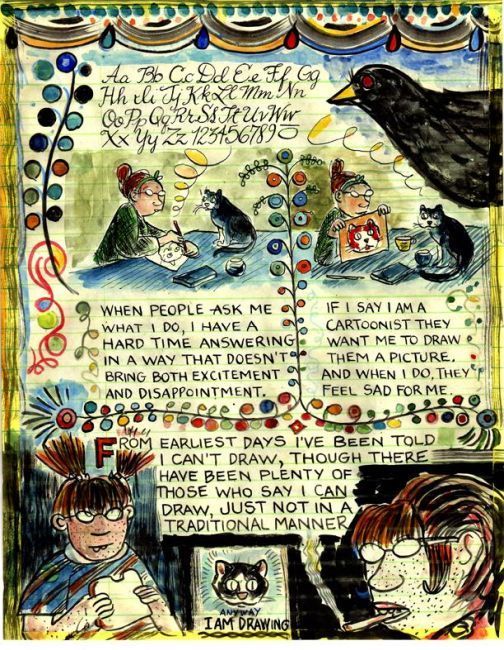 Aa Bb Cc Dd Ee Ff Gg
Hh Ii Jj Kk Ll Mm Nn
Oo Pp Qq Rr Ss Tt Uu Vv Ww
Xx Yy Zz 1234567890
WHEN PEOPLE ASK ME
WHAT I DO, I HAVE A
HARD TIME ANSWERING
IN A WAY THAT DOESN'T
BRING BOTH EXCITEMENT
AND DISAPPOINTMENT.
IF I SAY I AM A
CARTOONIST THEY
WANT ME TO DRAW
THEM A PICTURE.
AND WHEN I DO, THEY
FEEL SAD FOR ME
FROM MY EARLIEST DAYS I'VE BEEN TOLD
I CAN'T DRAW, THOUGH THERE
HAVE BEEN PLENTY OF
THOSE WHO SAY I CAN
DRAW, JUST NOT IN A
TRADITIONAL MANNER
ANYWAY
I AM DRAWING